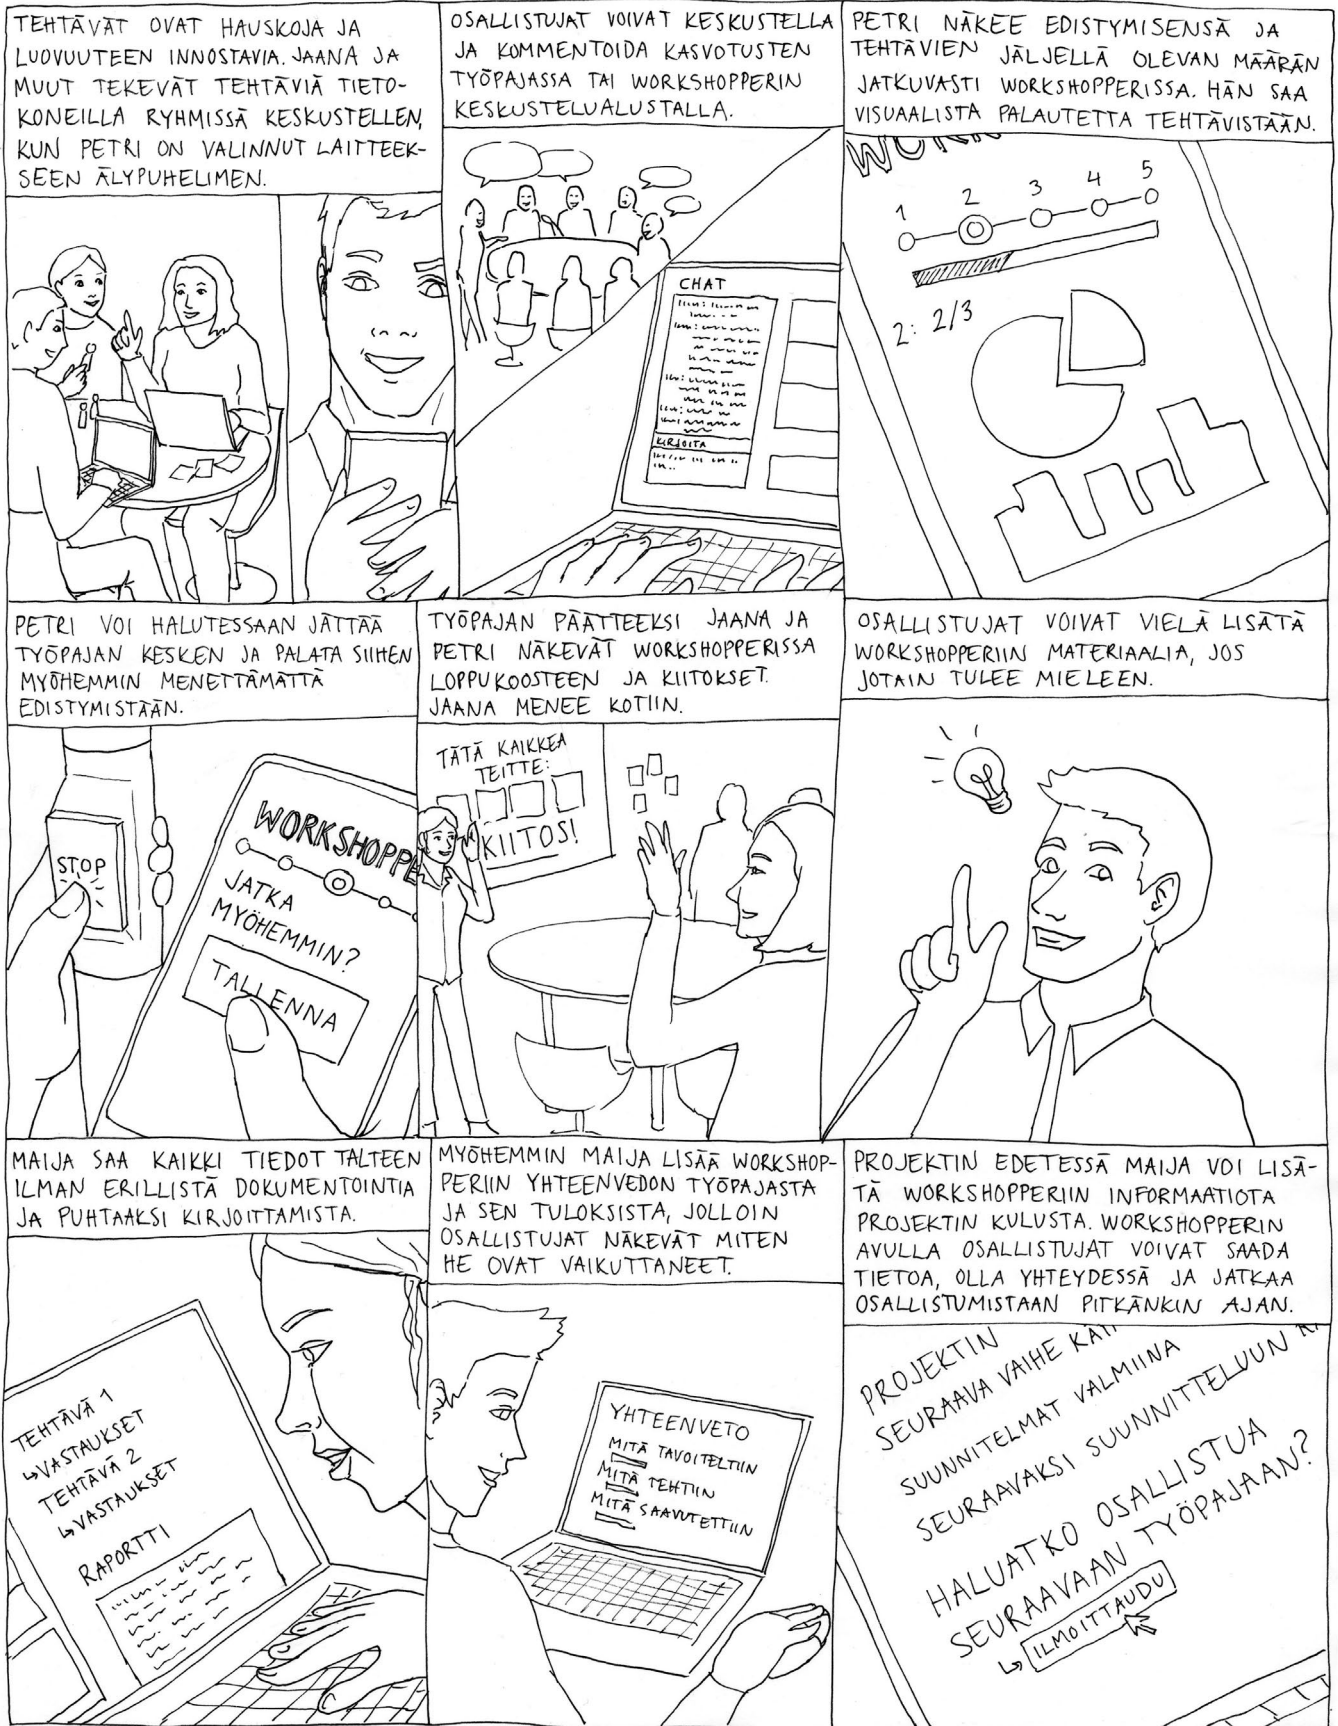 TEHTÄVÄT OVAT HAUSKOJA JA
LUOVUUTEEN INNOSTAVIA. JAANA JA
MUUT TEKEVÄT TEHTÄVIÄ TIETO-
KONEILLA RYHMISSÄ KESKUSTELLEN,
KUN PETRI ON VALINNUT LAITTEEK-
SEEN ÄLYPUHELIMEN.
OSALLISTUJAT VOIVAT KESKUSTELLA
JA KOMMENTOIDA KASVOTUSTEN
TYÖPAJASSA TAI WORKSHOPPERIN
KESKUSTELUALUSTALLA.
CHAT
KIRJOITA
PETRI NÄKEE EDISTYMISENSÄ JA
TEHTÄVIEN JÄLJELLÄ OLEVAN MÄÄRÄN
JATKUVASTI WORKSHOPPERISSA. HÄN SAA
VISUAALISTA PALAUTETTA TEHTÄVISTÄÄN.
1 2 3 4 5
2: 2/3
PETRI VOI HALUTESSAAN JÄTTÄÄ
TYÖPAJAN KESKEN JA PALATA SIIHEN
MYÖHEMMIN MENETTÄMÄTTÄ
EDISTYMISTÄÄN.
STOP
WORKSHOPPE
JATKA
MYÖHEMMIN?
TALLENNA
TYÖPAJAN PÄÄTTEEKSI JAANA JA
PETRI NÄKEVÄT WORKSHOPPERISSA
LOPPUKOOSTEEN JA KIITOKSET.
JAANA MENEE KOTIIN.
TÄTÄ KAIKKEA
TEITTE:
KIITOS!
OSALLISTUJAT VOIVAT VIELÄ LISÄTÄ
WORKSHOPPERIIN MATERIAALIA, JOS
JOTAIN TULEE MIELEEN.
MAIJA SAA KAIKKI TIEDOT TALTEEN
ILMAN ERILLISTÄ DOKUMENTOINTIA
JA PUHTAAKSI KIRJOITTAMISTA.
TEHTÄVÄ 1
↳VASTAUKSET
TEHTÄVÄ 2
↳VASTAUKSET
RAPORTTI
MYÖHEMMIN MAIJA LISÄÄ WORKSHOP-
PERIIN YHTEENVEDON TYÖPAJASTA
JA SEN TULOKSISTA, JOLLOIN
OSALLISTUJAT NÄKEVÄT MITEN
HE OVAT VAIKUTTANEET.
YHTEENVETO
MITÄ TAVOITELTIIN
MITÄ TEHTIIN
MITÄ SAAVUTETTIIN
PROJEKTIN EDETESSÄ MAIJA VOI LISÄ-
TÄ WORKSHOPPERIIN INFORMAATIOTA
PROJEKTIN KULUSTA. WORKSHOPPERIN
AVULLA OSALLISTUJAT VOIVAT SAADA
TIETOA, OLLA YHTEYDESSÄ JA JATKAA
OSALLISTUMISTAAN PITKÄNKIN AJAN.
PROJEKTIN
SEURAAVA VAIHE
SUUNNITELMAT VALMIINA
SEURAAVAKSI SUUNNITTELUUN
HALUATKO OSALLISTUA
SEURAAVAAN TYÖPAJAAN?
↳ ILMOITTAUDU